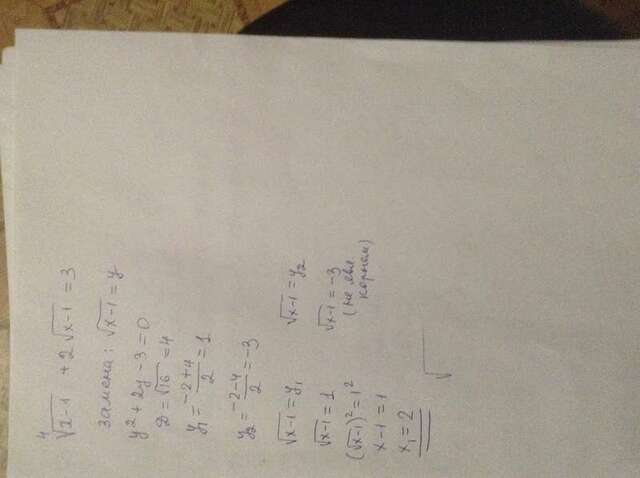 ⁴√x-1 + 2√x-1 = 3
Замена: √x-1 = y
y² + 2y - 3 = 0
D = √16 = 4
y₁ = -2+4/2 = 1
y₂ = -2-4/2 = -3
√x-1 = y₁ √x-1 = y₂
√x-1 = 1 √x-1 = -3
(√x-1)² = 1² (не явл
x-1 = 1 корнем)
x₁ = 2
√